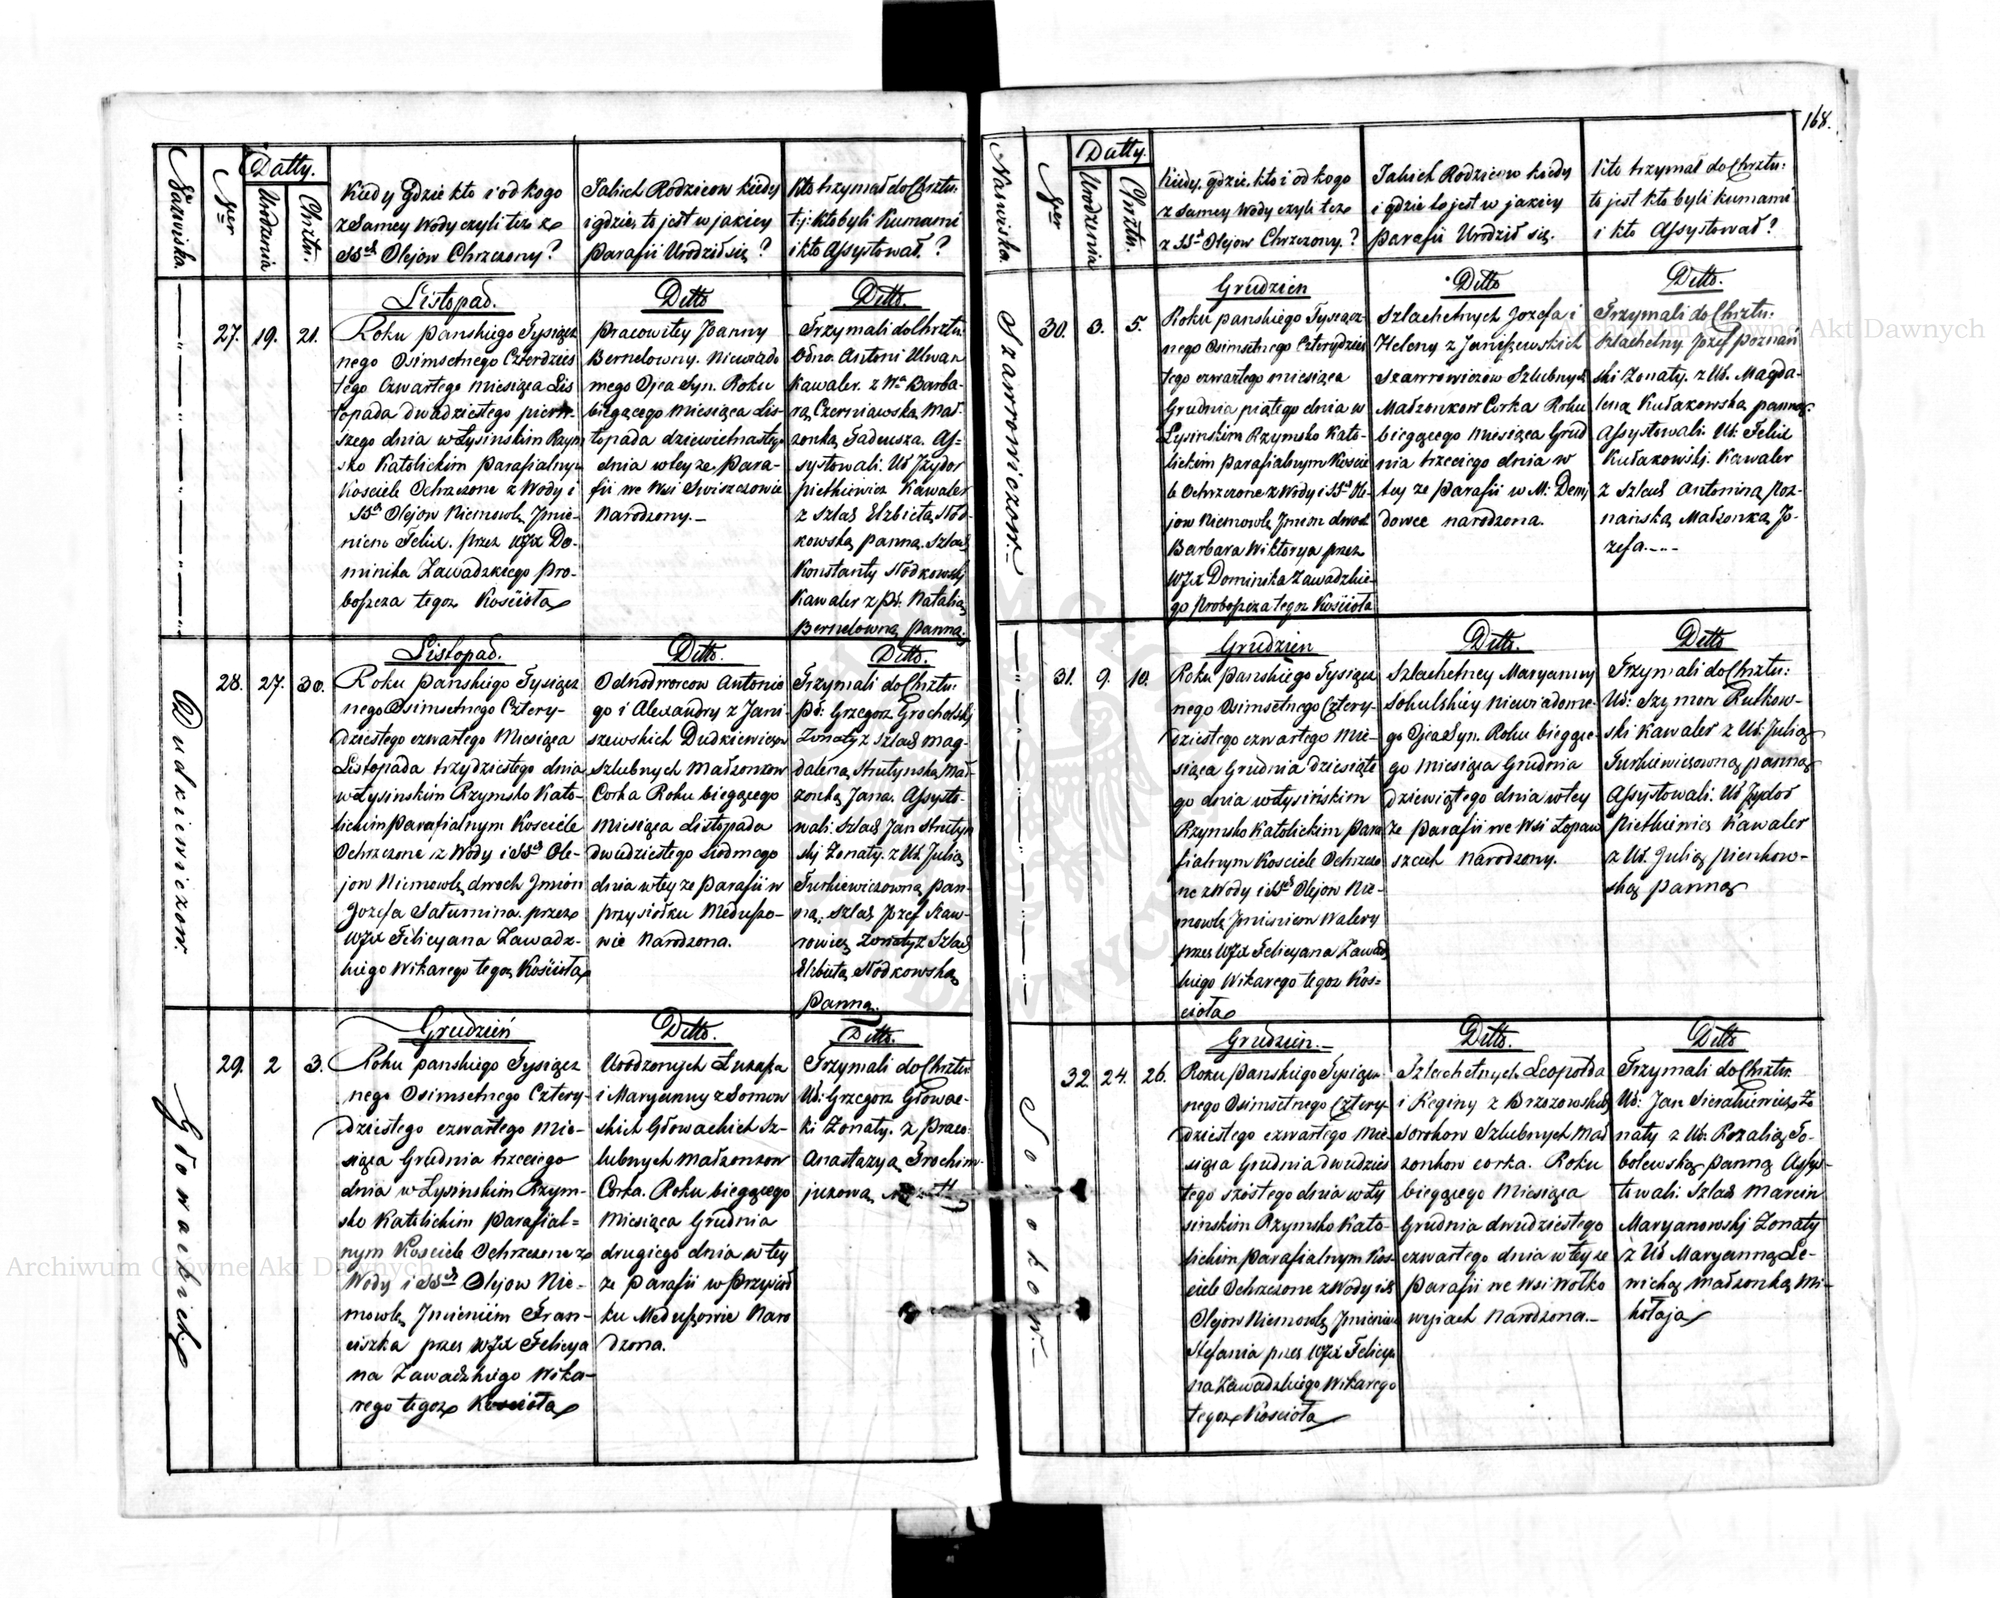 168.
Nazwiska.
Ner
Datty.
Urodzenia
Chrztu.
Kiedy Gdzie kto i od kogo
z Samey Wody czyli też z
SSch Olejow Chrzczony?
Jakich Rodzicow kiedy
i gdzie, to jest w jakiey
Parafii Urodził się?
Kto trzymał do Chrztu:
t:j: kto byli Kumami
i kto Assystował?
27.
19.
21.
Listopad.
Roku Panskiego Tysiącz
nego Osimsetnego Czterdzies
tego Czwartego miesiąca Lis
topada dwudziestego pierw-
szego dnia w Łysinskim Rzym
sko Katolickim Parafialnym
Kosciele Ochrzczone z Wody i
SSch Olejow Niemowle Jmie-
niem Felix. przez WJX Do-
minika Zawadzkiego Pro-
boszcza tegoż Kościoła
Ditto
Pracowitey Joanny
Bernelowny. Niewiado
mego Ojca Syn. Roku
biegącego Miesiąca Lis-
topada dziewietnastego
dnia w teyże Para-
fii we Wsi Swiszczowie
Narodzony.—
Ditto
Trzymali do Chrztu:
Odno: Antoni Ulwan
Kawaler. z Wą Barba-
rą Czerniawską Mał-
żonką Tadeusza. As=
systowali: Ur Jzydor
Pietkiewicz Kawaler
z Szlach Elzbietą Nod-
kowską Panną. Szlach
Konstanty Nodkowskj
Kawaler z Pd. Natalią
Bernelowną Panną.
Dudkiewiczow.
28.
27.
30.
Listopad.
Roku Panskiego Tysiącz
nego Osimsetnego Cztery-
dziestego czwartego Miesiąca
Listopada trzydziestego dnia
w Łysinskim Rzymsko Kato-
lickim Parafialnym Kosciele
Ochrzczone z Wody i SSch Ole-
jow Niemowle dwoch Jmion
Jozefa Saturnina. przez
WJX Felicyana Zawadz-
kiego Wikarego tegoż Kościoła
Ditto.
Odnodworcow Antonie
go i Alexandry z Jani-
szewskich Dudkiewiczow
Szlubnych Małzonkow
Corka Roku biegącego
Miesiąca Listopada
dwudziestego siodmego
dnia w teyże Parafii w
przysiołku Meduszo-
wie Narodzona.
Ditto.
Trzymali do Chrztu:
Pd: Grzegorz Grocholskj
Zonaty z Szlach Mag-
daleną Strutynską Mał-
zonką Jana. Assysto-
wali: Szlach Jan Strutyn
skj Zonaty. z Ur. Julią
Turkiewiczowną Pan-
ną. Szlach Jozef Szaw-
rowicz Zonaty z Szlach
Elzbietą Nodkowską
Panną.
Głowackich
29.
2
3.
Grudzień
Roku Panskiego Tysiącz
nego Osimsetnego Cztery-
dziestego czwartego Mie-
siąca Grudnia trzeciego
dnia w Łysinskim Rzym-
sko Katolickim Parafial=
nym Kosciele Ochrzczone z
Wody i SSch Olejow Nie-
mowle Jmieniem Fran-
ciszka przez WJX Felicya
na Zawadzkiego Wika-
rego tegoż Kościoła
Ditto.
Urodzonych Łukasza
i Maryanny z Somow
skich Głowackich Sz-
lubnych Małzonkow
Corka. Roku biegącego
Miesiąca Grudnia
drugiego dnia w tey
że Parafii w Przysioł
ku Meduszowie Naro
dzona.
Ditto.
Trzymali do Chrztu:
Ur: Grzegorz Głowac-
ki Zonaty. z Praco:
Anastazyą Trochim-
jukową
Nazwiska.
Ner
Datty.
Urodzenia
Chrztu.
Kiedy, gdzie, kto i od kogo
z Samey Wody czyli też
z SSch Olejow Chrzczony?
Jakich Rodzicow kiedy
i gdzie to jest w jakiey
Parafii Urodził się.
Kto trzymał do Chrztu:
to jest kto byli kumami
i kto Assystował?
Szawrowiczow.
30.
3.
5.
Grudzien
Roku Panskiego Tysiącz-
nego Osimsetnego Czterydzies
tego czwartego miesiąca
Grudnia piątego dnia w
Łysinskim Rzymsko Kato-
lickim Parafialnym Koscie
le Ochrzczone z Wody i SSch Ole-
jow Niemowle Jmion dwoch
Barbara Wiktorya przez
WJX Dominika Zawadzkie
go Proboszcza tegoż Kościoła
Ditto
Szlachetnych Jozefa i
Heleny z Janiszewskich
Szawrowiczow Szlubnych
Małzonkow Corka Roku
biegącego Miesiąca Grud
nia trzeciego dnia w
tey że Parafii w M: Demj
dowce narodzona.
Ditto.
Trzymali do Chrztu:
Szlachetny Jozef Poznan
ski Zonaty. z Ur. Magda-
leną Kułakowską Panną.
Assystowali. Ur. Felix
Kułakowskj. Kawaler
z Szlach Antoniną Poz-
nańską Małzonką Jo-
zefa.---
31.
9.
10.
Grudzien
Roku Panskiego Tysiącz
nego Osimsetnego Cztery-
dziestego czwartego Mie-
siąca Grudnia dziesiąte
go dnia w Łysińskim
Rzymsko Katolickim Para
fialnym Kosciele Ochrzczo
ne z Wody i SSch Olejow Nie-
mowle Jmieniem Walery
przez WJX Felicyana Zawadz
kiego Wikarego tegoż Kos=
cioła
Ditto.
Szlachetney Maryanny
Sokulskiey Niewiadome-
go Ojca Syn. Roku biegące-
go Miesiąca Grudnia
dziewiątego dnia w tey
że Parafii we Wsi Łopaw
szach Narodzony.
Ditto
Trzymali do Chrztu:
Ur: Szymon Rutkow-
ski Kawaler z Ur. Julią
Turkiewiczowną Panną
Assystowali. Ur Jzydor
Pietkiewicz Kawaler
z Ur. Julią Pienkow-
ską Panną
Sorokow.
32.
24.
26.
Grudzien.
Roku Panskiego Tysiącz-
nego Osimsetnego Cztery-
dziestego czwartego Mie-
siąca Grudnia dwudzies
tego szóstego dnia w Ły
sinskim Rzymsko Kato-
lickim Parafialnym Kos-
ciele Ochrzczone z Wody i SS
Olejow Niemowle Jmieniem
Stefania przez WJX Felicya
na Zawadzkiego Wikarego
tegoż Kościoła
Ditto.
Szlachetnych Leopolda
i Reginy z Brzozowskich
Sorokow Szlubnych Mał
zonkow corka. Roku
biegącego Miesiąca
Grudnia dwudziestego
czwartego dnia w tey że
Parafii we Wsi Wołko
wyiach Narodzona.—
Ditto
Trzymali do Chrztu.
Ur: Jan Sierakiewicz Zo
naty z Ur. Rozalią So-
bolewską Panną Assys-
towali: Szlach Marcin
Maryanowskj Zonaty
z Ur Maryanną Le-
wicką Małzonką Mi-
kołaja
Archiwum Główne Akt Dawnych
Archiwum Główne Akt Dawnych